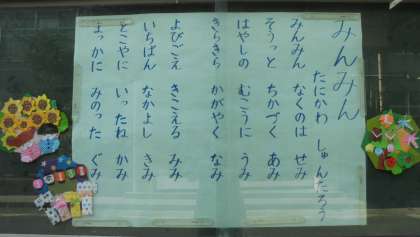 みんみん
たにかわ しゅんたろう
みんみん なくのは せみ
そうっと ちかづく あみ
はやしの むこうに うみ
きらきら かがやく なみ
よびごえ きこえる みみ
いちばん なかよし きみ
とこやに いったね かみ
まっかに みのった ぐみ